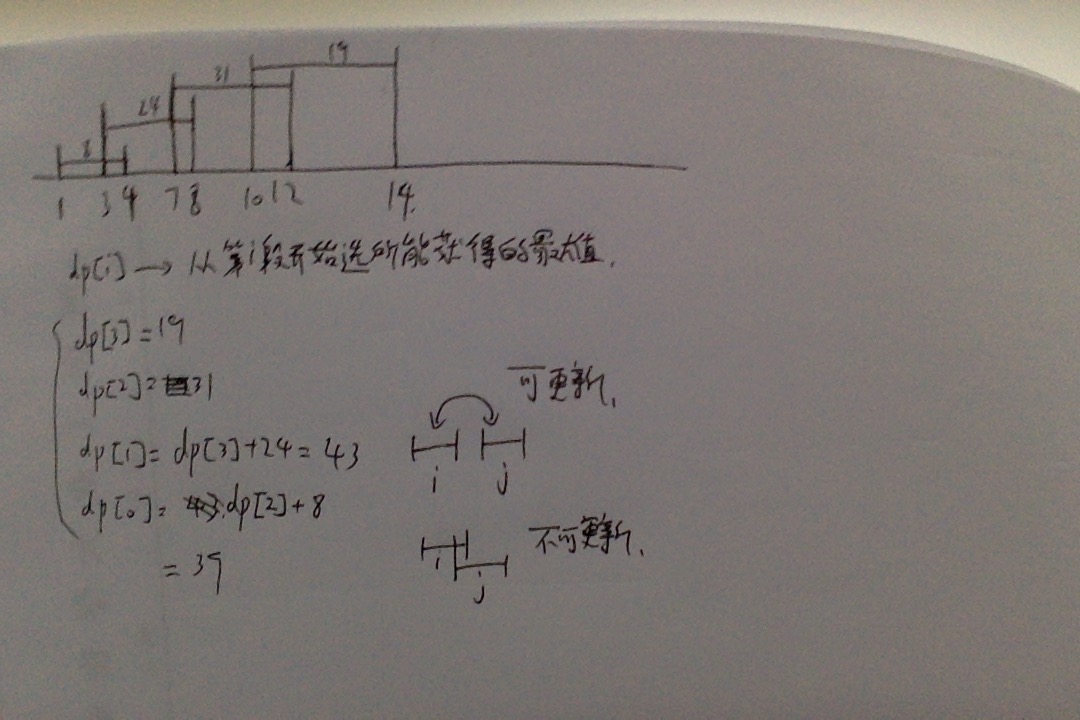 19
31
24
8
1 3 4 7 8 10 12 14.
dp[i] → 从第i段开始选所能获得的最大值.
dp[3] = 19
dp[2] = 31
可更新.
dp[1] = dp[3]+24 = 43
i j
dp[0] = dp[2]+8
不可更新.
i
= 39
j